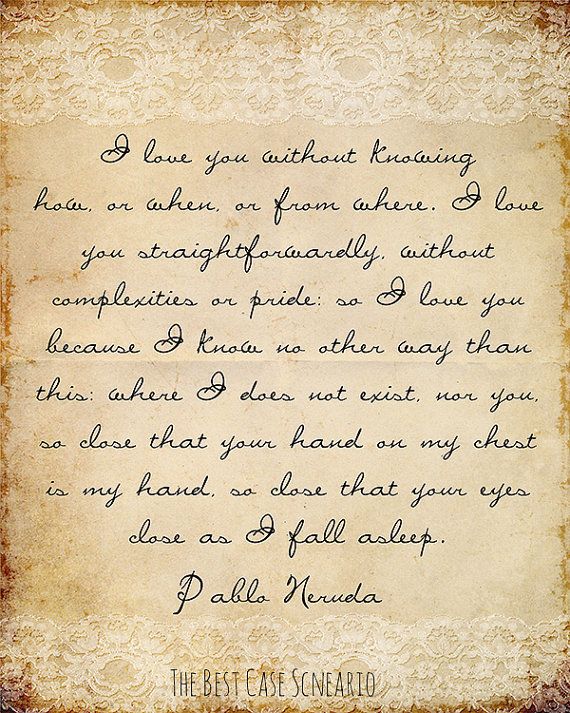 I love you without knowing
how, or when, or from where. I love
you straightforwardly, without
complexities or pride: so I love you
because I know no other way than
this: where I does not exist, nor you,
so close that your hand on my chest
is my hand, so close that your eyes
close as I fall asleep.
Pablo Neruda
The Best Case Scneario